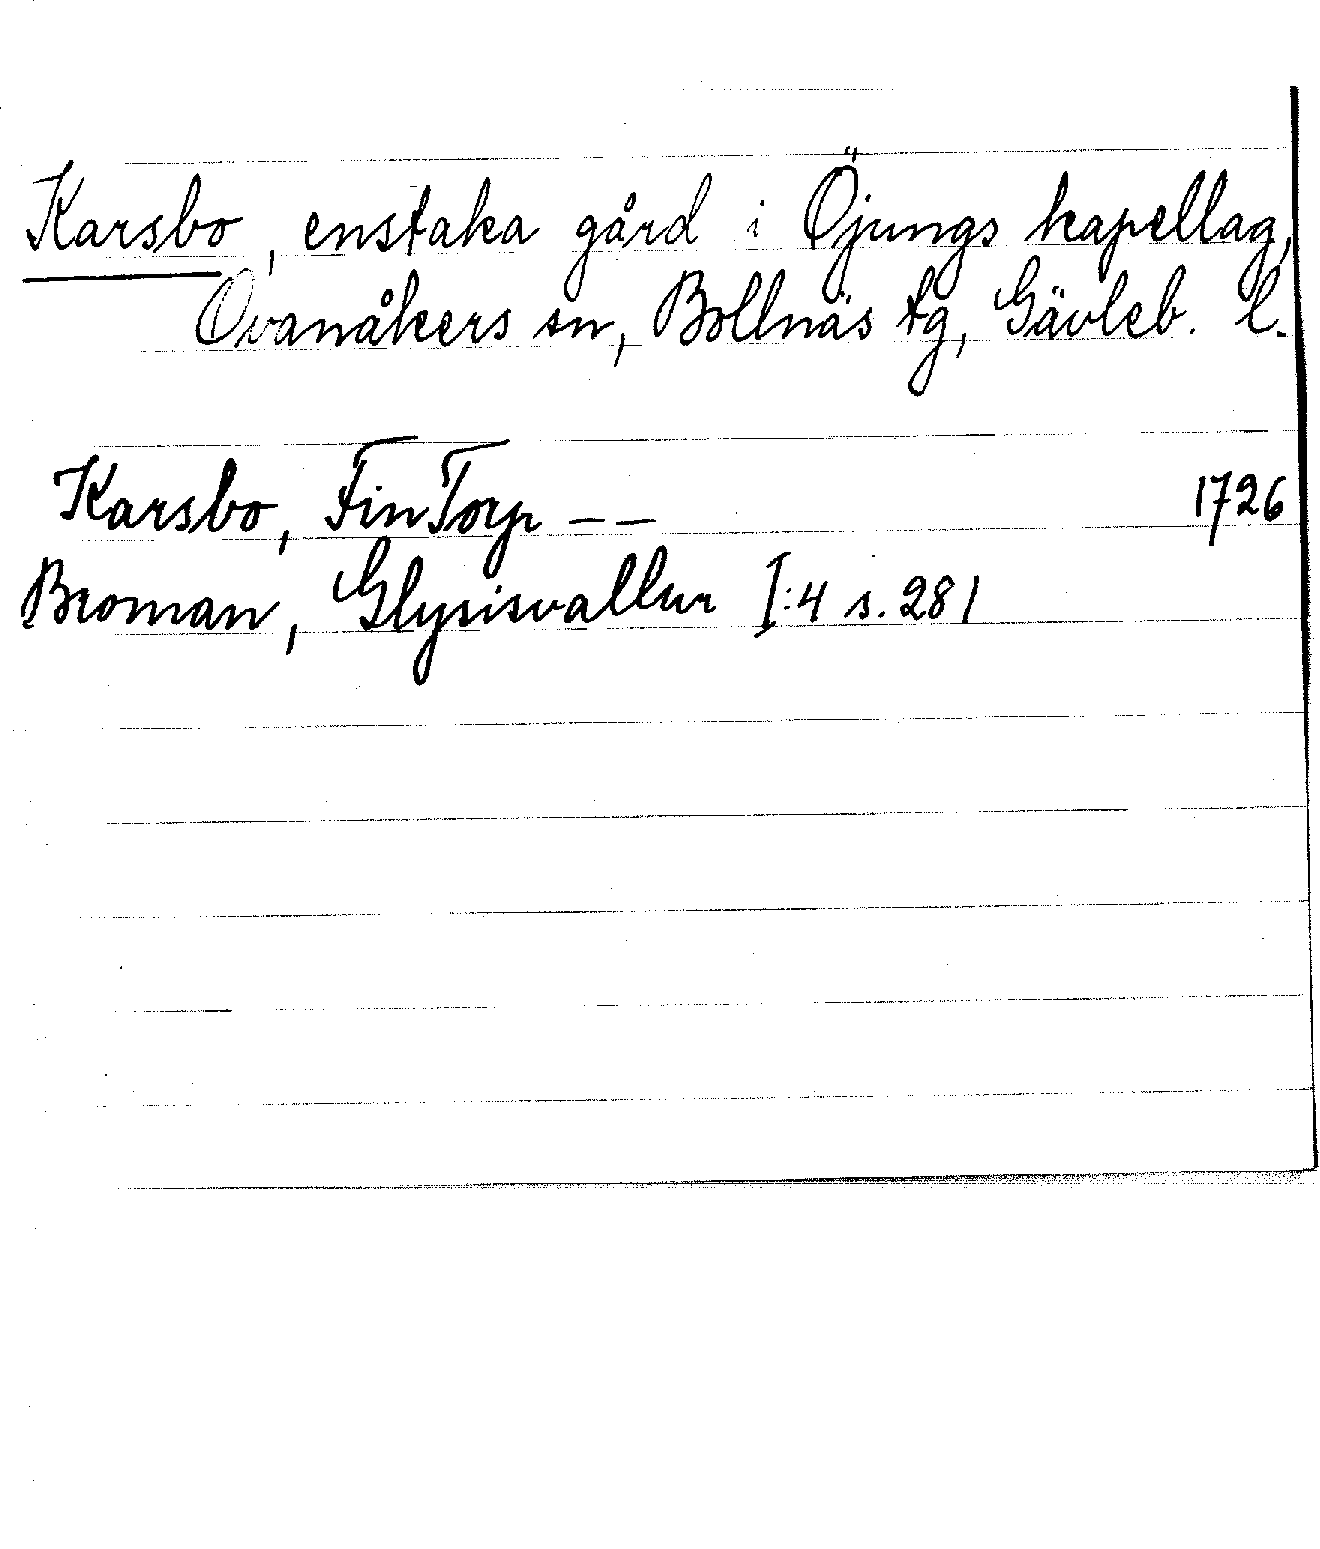 Karsbo, enstaka gård i Öjungs kapellag,
Ovanåkers sn, Bollnäs tg, Gävleb. l.
Karsbo, FinTorp — — 1726
Broman, Glysisvallur I:4 s. 281